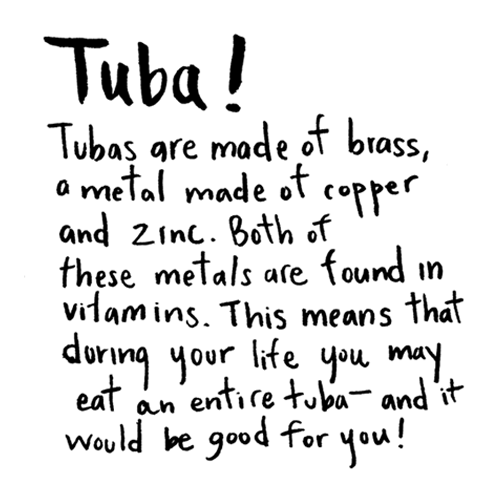 Tuba!
Tubas are made of brass,
a metal made of copper
and zinc. Both of
these metals are found in
vitamins. This means that
during your life you may
eat an entire tuba— and it
would be good for you!